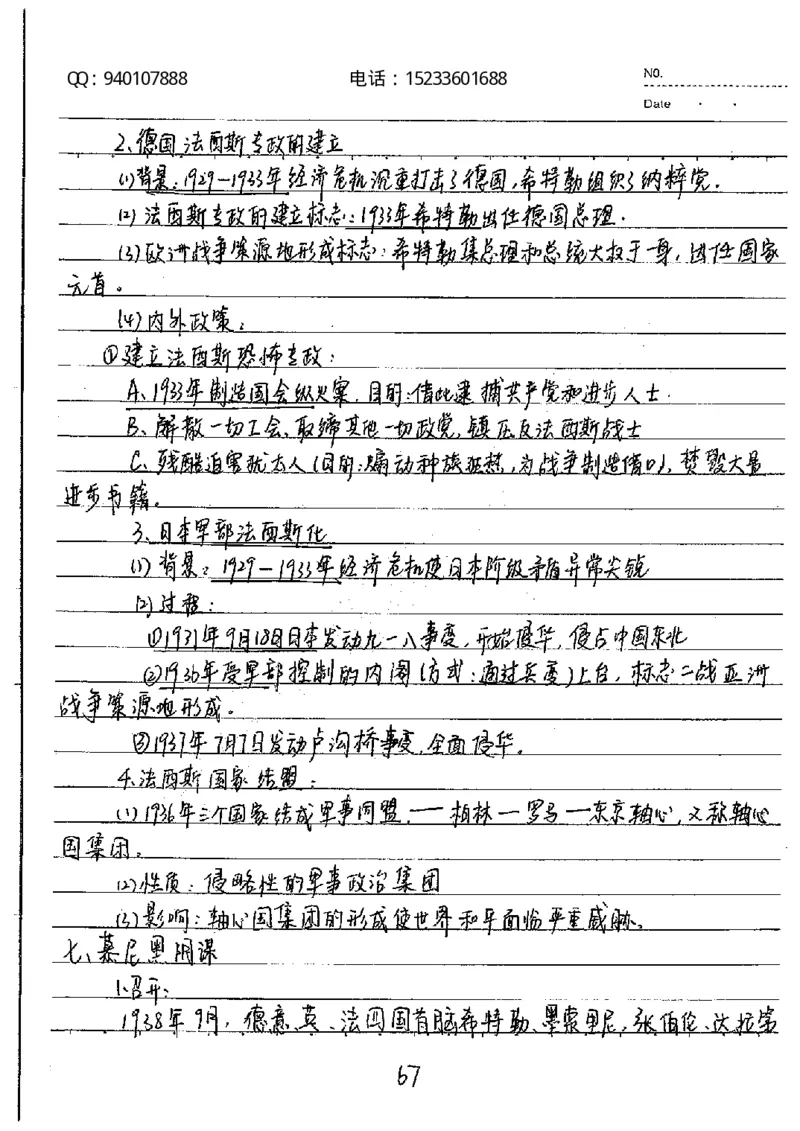 QQ：940107888 电话：15233601688 NO.
Date
2、德国法西斯专政的建立
(1)背景：1929—1933年经济危机沉重打击了德国，希特勒组织了纳粹党．
(2)法西斯专政的建立标志：1933年希特勒出任德国总理．
(3)欧洲战争策源地形成标志：希特勒集总理和总统大权于一身，出任国家
元首。
(4)内外政策：
①建立法西斯恐怖专政：
A、1933年制造国会纵火案．目的：借此逮捕共产党和进步人士．
B、解散一切工会、取缔其他一切政党，镇压反法西斯战士
C、残酷迫害犹太人(目的：煽动种族狂热，为战争制造借口)，焚毁大量
进步书籍。
3、日本军部法西斯化
(1)背景：1929—1933年经济危机使日本阶级矛盾异常尖锐
(2)过程：
①1931年9月18日日本发动九一八事变，开始侵华，侵占中国东北
②1936年受军部控制的内阁(方式：通过兵变)上台，标志二战亚洲
战争策源地形成。
③1937年7月7日发动卢沟桥事变，全面侵华。
4、法西斯国家结盟：
(1)1936年三个国家结成军事同盟．——柏林—罗马—东京轴心，又称轴心
国集团。
(2)性质：侵略性的军事政治集团
(3)影响：轴心国集团的形成使世界和平面临严重威胁。
七、慕尼黑阴谋
1、召开：
1938年9月，德、意、英、法四国首脑希特勒、墨索里尼、张伯伦、达拉第
67